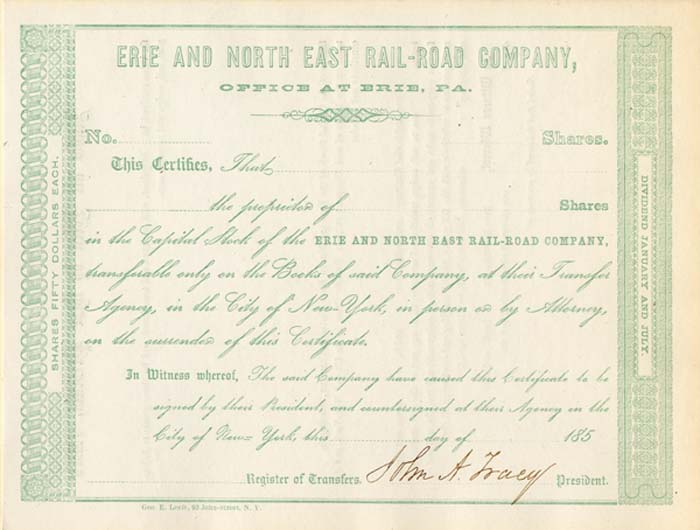 ERIE AND NORTH EAST RAIL-ROAD COMPANY,
OFFICE AT ERIE, PA.
No. Shares.
This Certifies, That
the proprietor of Shares
in the Capital Stock of the ERIE AND NORTH EAST RAIL-ROAD COMPANY,
transferable only on the Books of said Company, at their Transfer
Agency, in the City of New-York, in person or by Attorney,
on the surrender of this Certificate.
In Witness whereof, The said Company have caused this Certificate to be
signed by their President, and countersigned at their Agency in the
City of New-York, this day of 185
Register of Transfers. John A. Tracy President.
Geo. E. Leefe, 93 John-street, N. Y.
SHARES FIFTY DOLLARS EACH.
DIVIDEND JANUARY AND JULY.